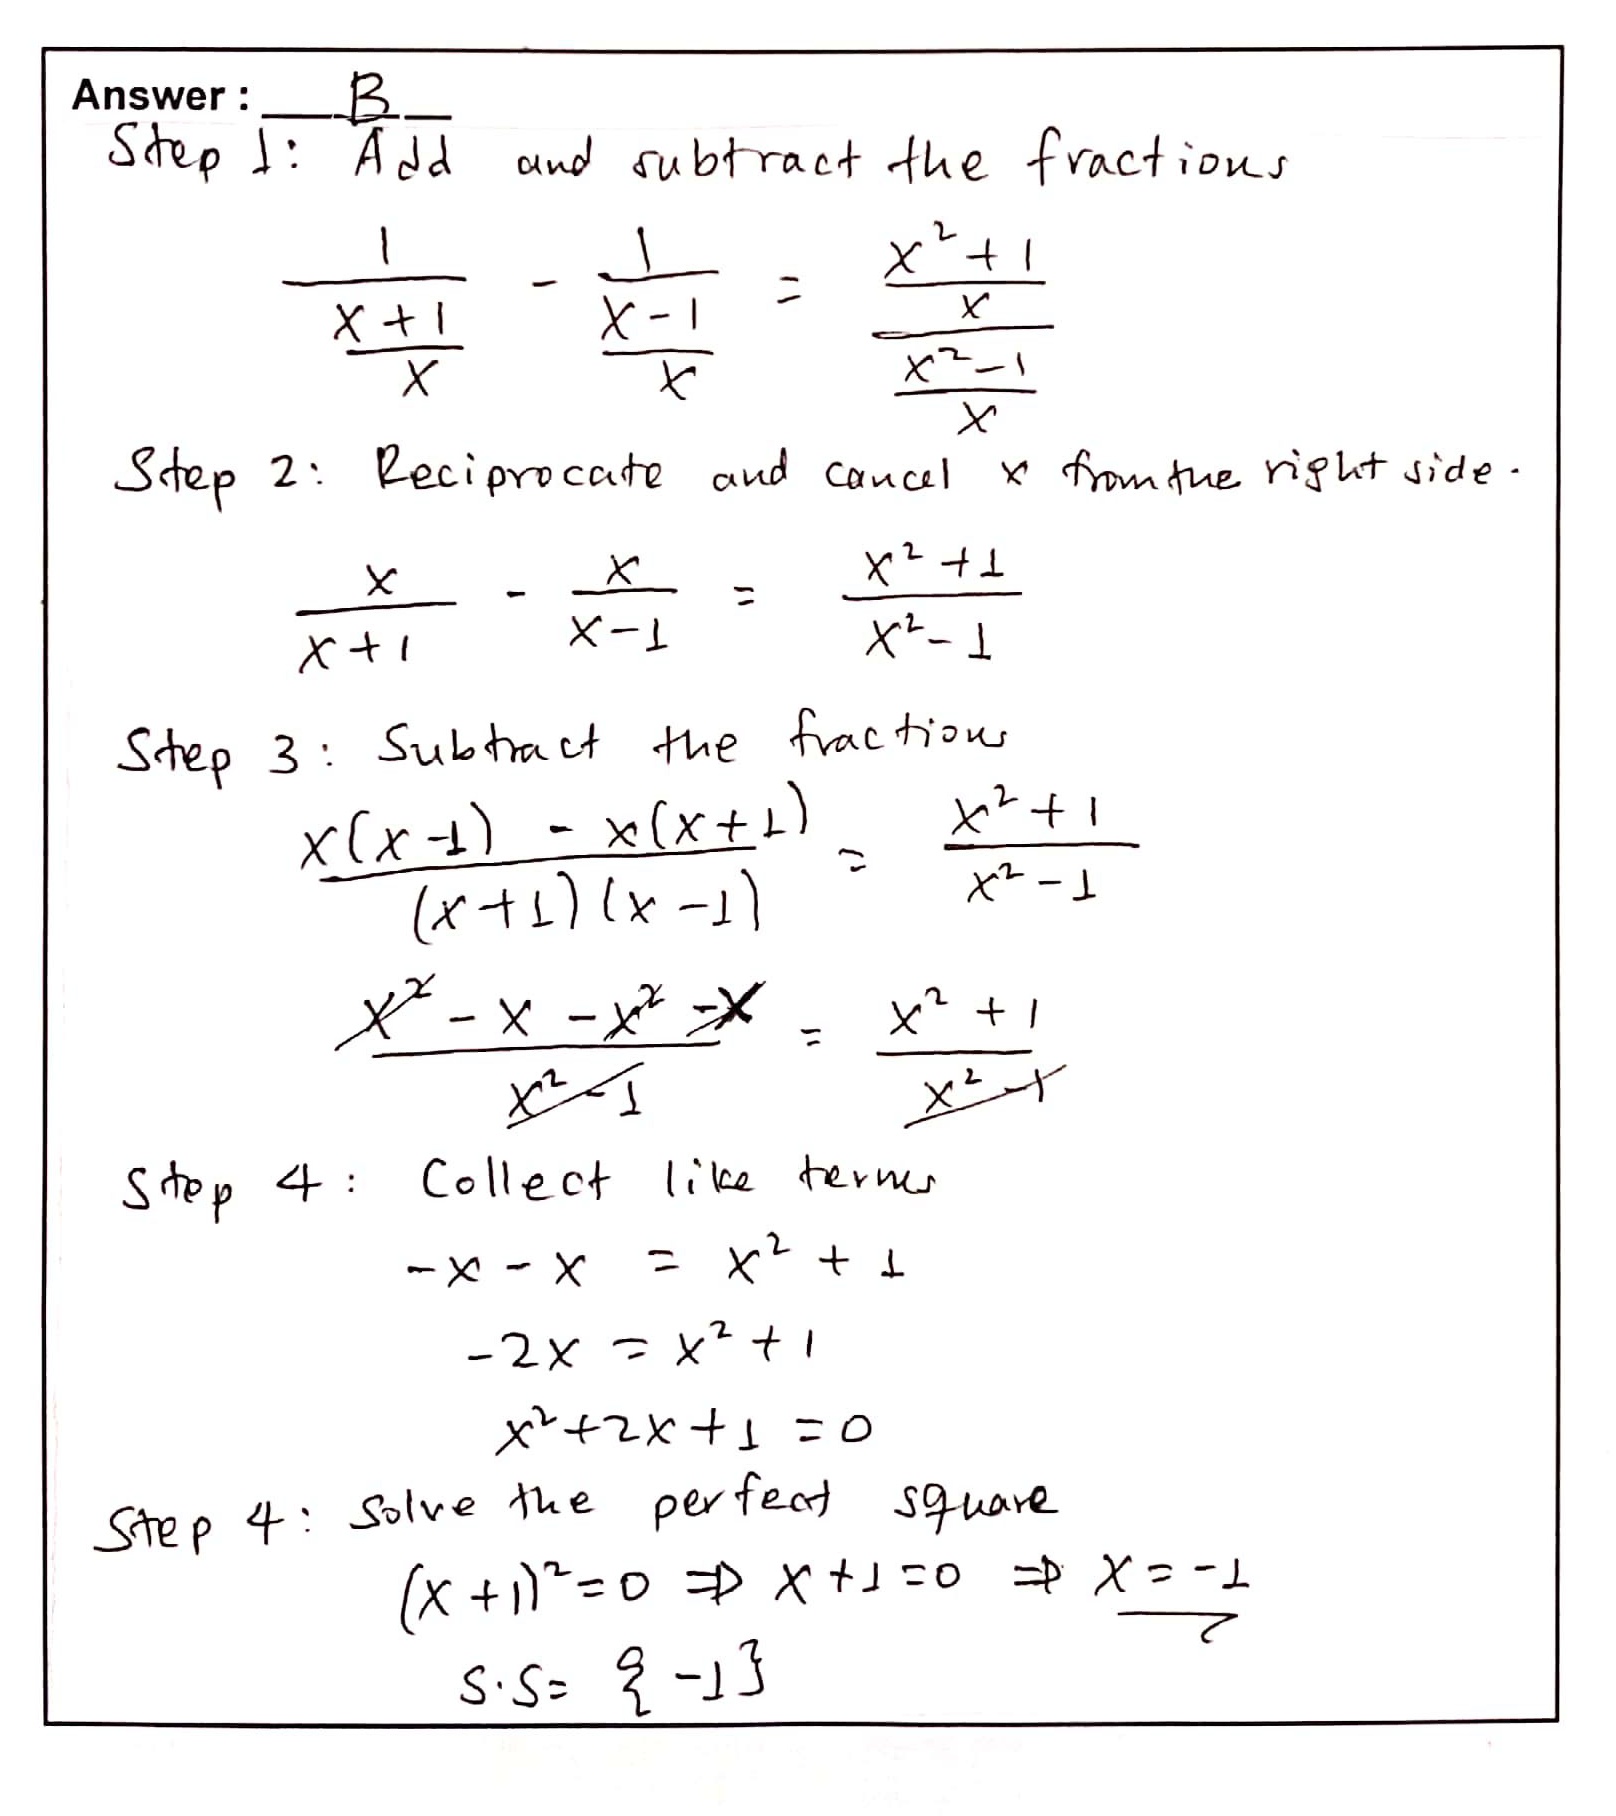 Answer : B
Step 1: Add and subtract the fractions
1/((x+1)/x) - 1/((x-1)/x) = ((x²+1)/x)/((x²-1)/x)
Step 2: Reciprocate and cancel x from the right side.
x/(x+1) - x/(x-1) = (x²+1)/(x²-1)
Step 3: Subtract the fractions
(x(x-1) - x(x+1))/((x+1)(x-1)) = (x²+1)/(x²-1)
(x² - x - x² - x)/(x²-1) = (x²+1)/(x²-1)
Step 4: Collect like terms
-x - x = x² + 1
-2x = x² + 1
x² + 2x + 1 = 0
Step 4: Solve the perfect square
(x+1)² = 0 ⇒ x+1 = 0 ⇒ x = -1
S.S = {-1}